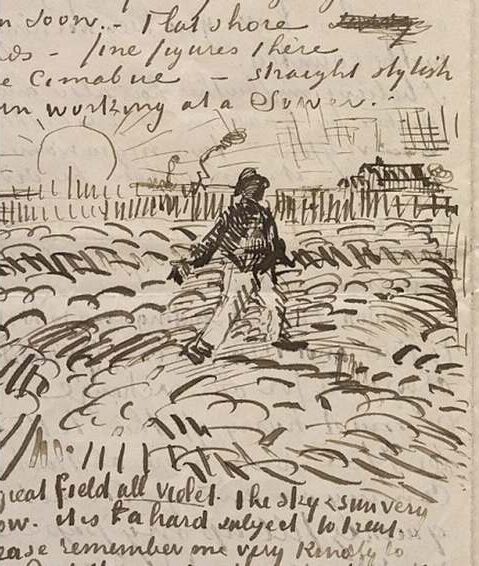 n soon. - Flat shore
ds - fine figures there
e Cimabue - straight stylish
m working at a Sower.
great field all violet. the sky & sun very
ow. it is a hard subject to treat.
ease remember me very kindly to